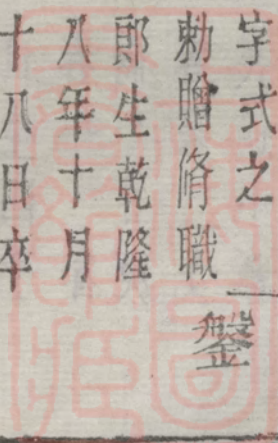 字式之
勅贈脩職
郎生乾隆
八年十月
十八日卒